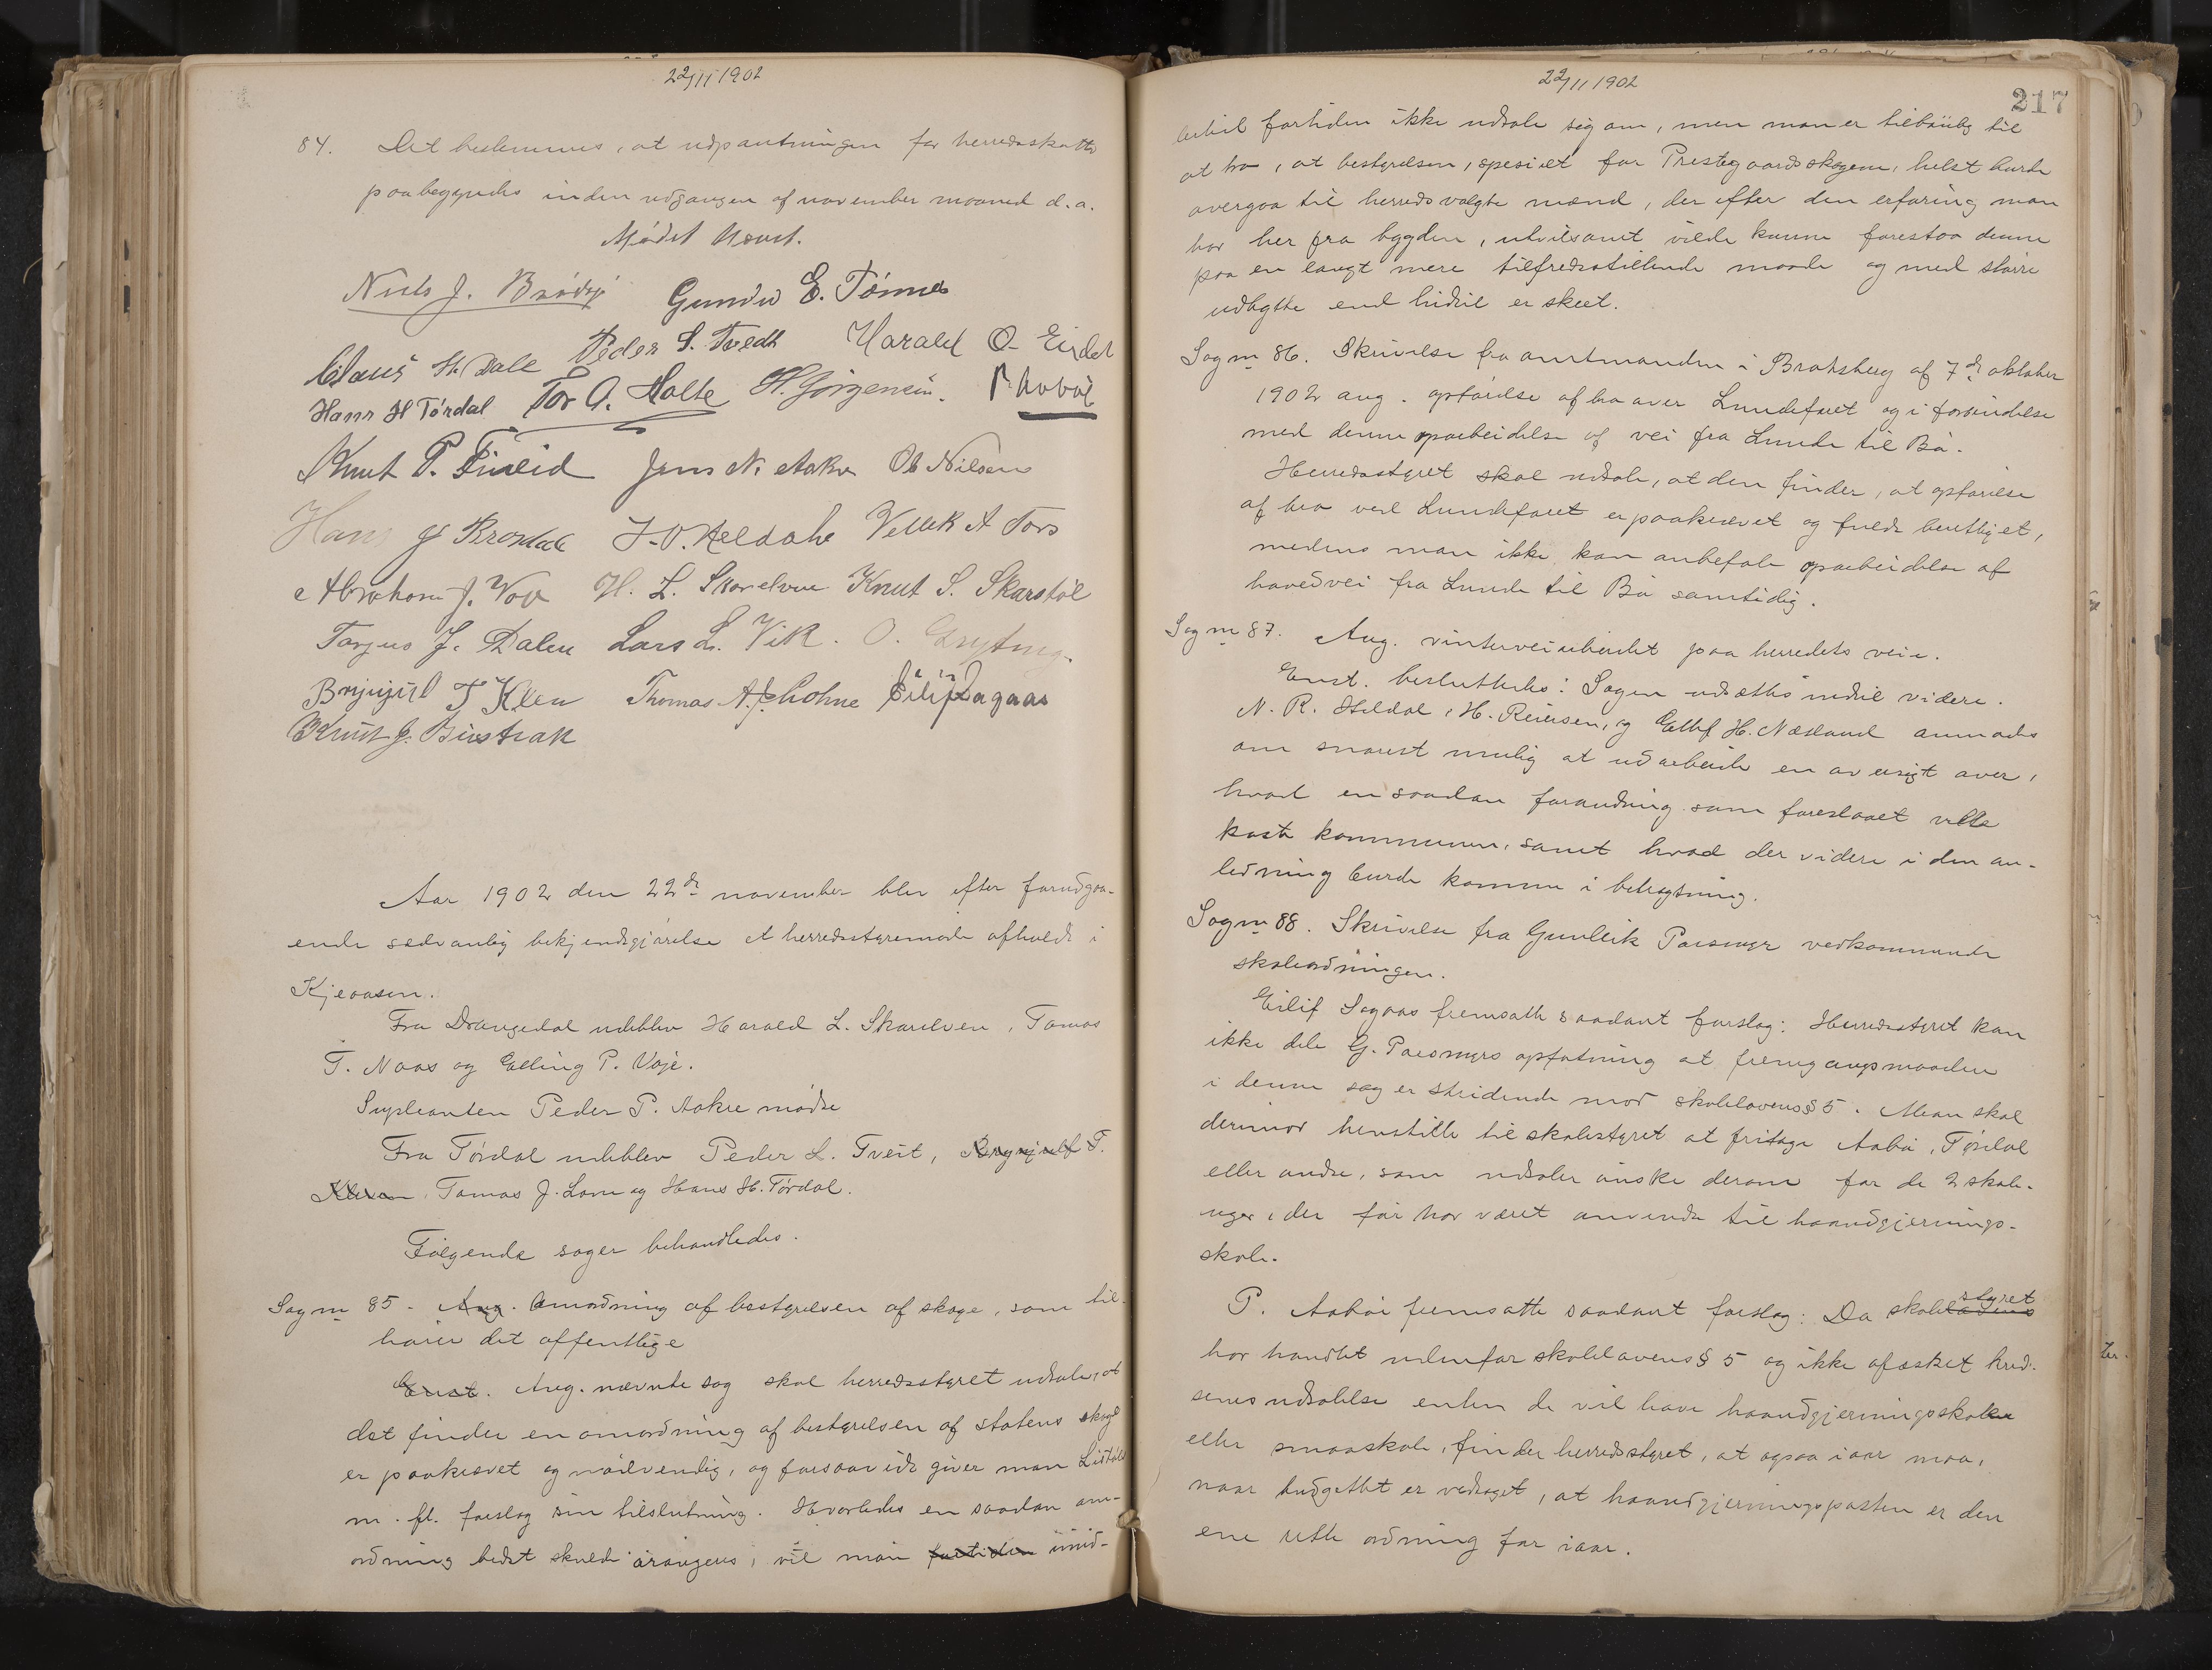 22/11 1902
84. Det bestemmes, at udpantningen for herredsskatter
paabegyndes inden udgangen af november maaned d.a.
Mødet hævet.
Niels J. Brødsjø Gunder E. Tønnes
Claus H. Dale Peder S. Tvedt Harald O. Eidet
Hans H Tørdal Tor A. Holte H. Jørgensen.
Knut P. Tveid Jens N. Aakre Ole Nilsen
Hans J Brødal J. O. Heldahl Vetlek A Tors
Abraham J. Voje H. L. Skarelven Knut S. Skarstøl
Torjus J. Dalen Lars L. Vik. O. Gryting.
Brynjulf T Kleu Thomas A. Eilif Sagaas
Knut J. Bustrak
Aar 1902 den 22de november blev efter forudgaa-
ende sedvanlig bekjendtgjørelse et herredsstyremøde afholdt i
Kjeaasen.
Fra Drangedal udeblev Harald L. Skarelven, Tomas
T. Naas og Elling P. Voje.
Supleanten Peder P. Aakre mødte
Fra Tørdal udeblev Peder L. Tveit, Brynjulf T.
Kleven, Tomas J. Lone og Hans H. Tørdal.
Følgende sager behandledes.
Sag no 85. Ang. Omordning af bestyrelsen af skoge, som til-
hører det offentlige
Enst. Ang. nævnte sag skal herredsstyret udtale, at
det finder en omordning af bestyrelsen af statens skoge
er paakrævet og nødvendig, og forsaavidt giver man Liestøl
m. fl. forslag sin tilslutning. Hvorledes en saadan om-
ordning bedst skulde arangeres, vil man fortiden imid-
22/11 1902
217
lertid fortiden ikke udtale sig om, men man er tilbøielig til
at tro, at bestyrelsen, spesielt for Prestegaardsskogene, helst burde
overgaa til herredsvalgte mænd, der efter den erfaring man
har her fra bygden, utvilsomt vilde kunne forestaa denne
paa en langt mere tilfredsstillende maade og med større
udbytte end hidtil er skeet.
Sag no 86. Skrivelse fra amtmanden i Bratsberg af 7de oktober
1902 ang. opførelse af bro over Lundefaret og i forbindelse
med denne oparbeidelse af vei fra Lunde til Bø.
Herredsstyret skal udtale, at den finder, at opførelse
af bro ved Lundefaret er paakrævet og fuldt berettiget,
medens man ikke kan anbefale oparbeidelse af
hovedvei fra Lunde til Bø samtidig.
Sag no 87. Ang. vinterveiarbeidet paa herredets veie.
Enst. besluttedes: Sagen udsættes indtil videre.
N. R. Heldal, H. Reiersen, og Ellef H. Næsland anmodes
om snarest mulig at udarbeide en oversigt over,
hvad en saadan forandring som foreslaaet vilde
koste kommunen, samt hvad der videre i den an-
ledning burde komme i betragtning.
Sag no 88. Skrivelse fra Gunleik Porsmyr vedkommende
skoleordningen.
Eilif Sagaas fremsatte saadant forslag: Herredsstyret kan
ikke dele G. Porsmyrs opfatning at fremgangsmaaden
i denne sag er stridende mod skolelovens § 5. Man skal
derimod henstille til skolestyret at fritage Aabø, Tørdal
eller andre, som udtaler ønske derom for de 2 skole-
uger, der før har været anvendt til haandgjernings-
skole.
P. Aabøe fremsatte saadant forslag: Da skolelovens styret
har handlet udenfor skolelovens § 5 og ikke afæsket kred-
senes udtalelse enten de vil have haandgjerningsskole
eller smaaskole, finder herredsstyret, at ogsaa iaar maa,
naar budgettet er vedtaget, at haandgjerningsposten er den
ene rette ordning for iaar.